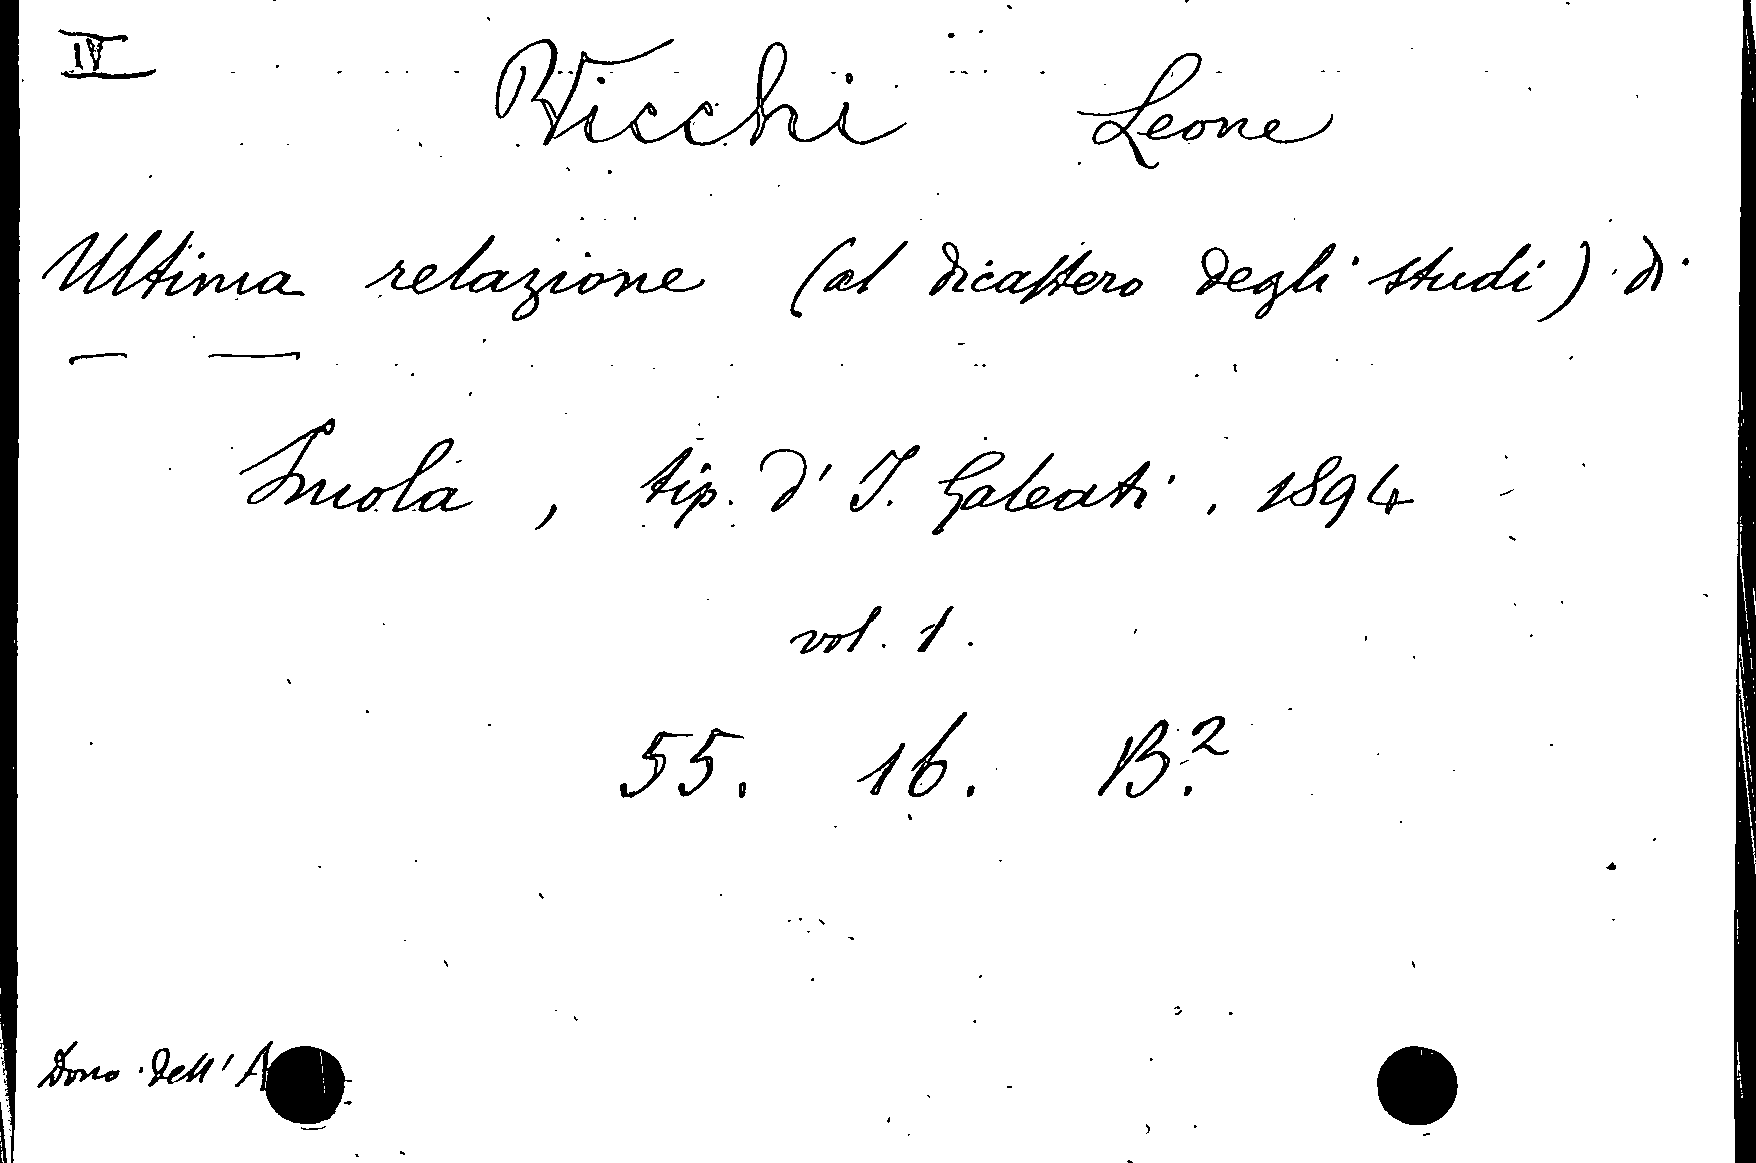 IV
Vicchi Leone
Ultima relazione (al dicastero degli studi) di
— —
Imola, tip. d' I. Galeati, 1894
vol. 1.
55. 16. B.²
Dono dell' A